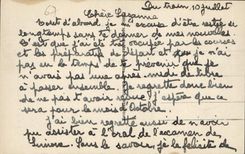 Du train, 10 juillet
Chère Suzanne
Tout d'abord je m'excuse d'être restée si
longtemps sans te donner de mes nouvelles.
C'est que j'ai été très occupée par les courses
et les préparatifs du départ et que je n'ai
pas eu le temps de te prévenir que je
n'avais pas une après-midi de libre
à passer ensemble. Je regrette donc bien
de ne pas t'avoir revue. J'espère que ce
sera pour le mois d'Octobre.
J'ai bien regretté aussi de n'avoir
pu assister à l'oral de l'examen de
Simone. Sans le savoir, je la félicite de